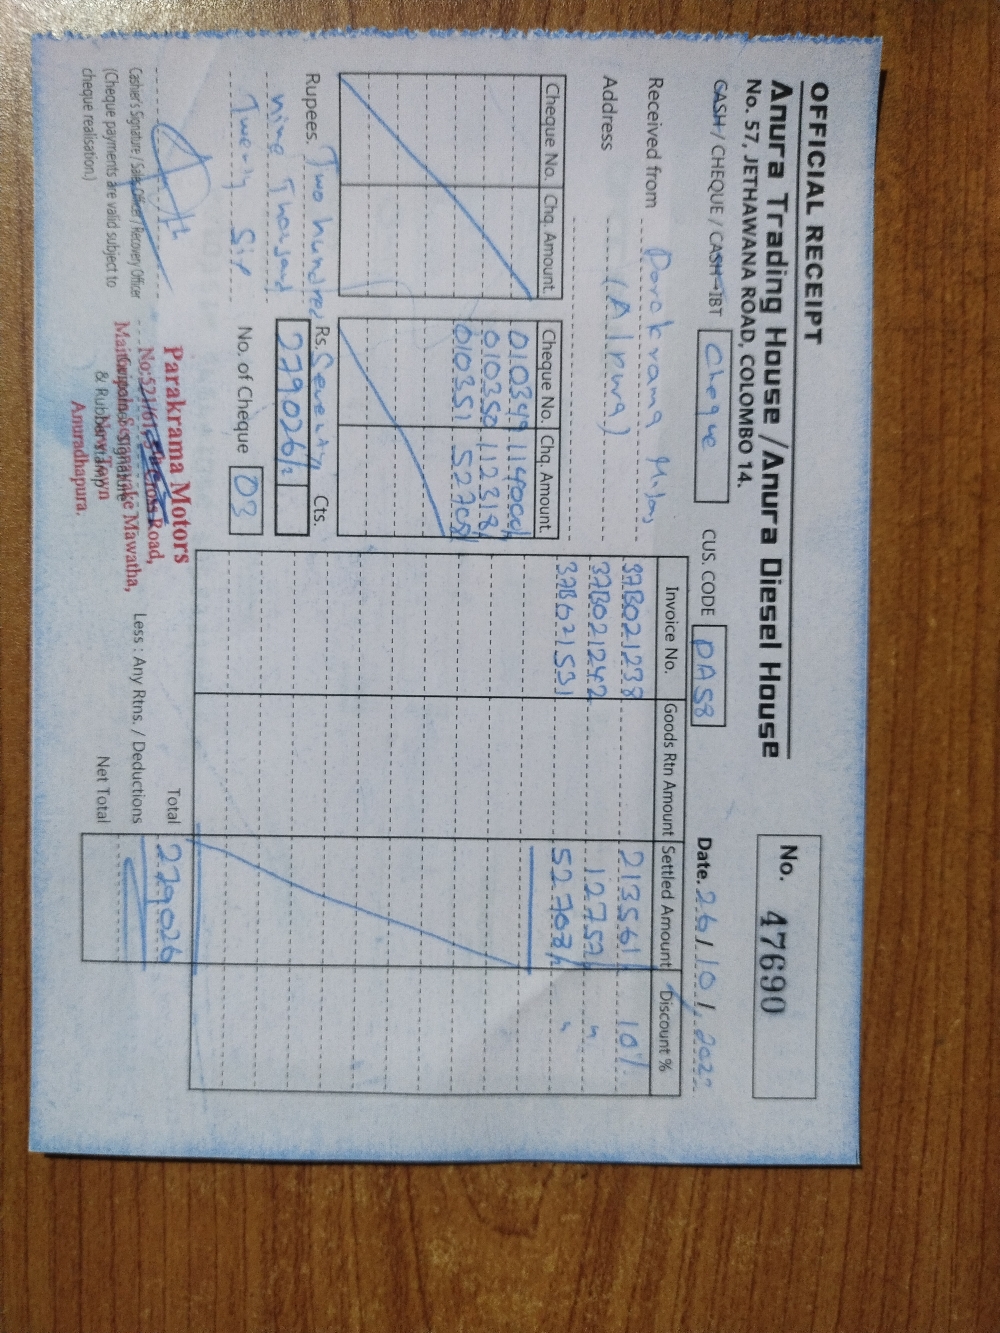 OFFICIAL RECEIPT
Anura Trading House / Anura Diesel House
No. 57, JETHAWANA ROAD, COLOMBO 14.
No. 47690
CASH / CHEQUE / CASH-IBT Cheque CUS. CODE PA58 Date. 26/10/
Received from Parakrama
Address (Alpwa)
Cheque No. Chq. Amount. Cheque No. Chq. Amount.
010349 114000/-
010350 112318/-
010351 52708/-
Invoice No. Goods Rtn Amount Settled Amount Discount %
37B021238 213561/- 10%
37B021242 12757/- "
37B021531 52708/- "
Rupees. Two hundred Seventy
nine Thousand
Twenty Six
Rs. Cts.
279026/-
No. of Cheque 03
Total 279026
Less : Any Rtns. / Deductions
Net Total
Casher's Signature / Sales Officer / Recovery Officer
(Cheque payments are valid subject to
cheque realisation.)
Parakrama Motors
Road,
Mawatha,
& Rubber stamp Town
Anuradhapura.